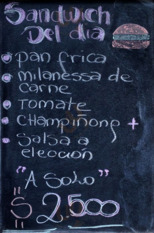 Sandwich
Del día
pan frica
milanessa de
carne
Tomate
Champiñong +
Salsa a
eleccion
"A Solo"
$2.500